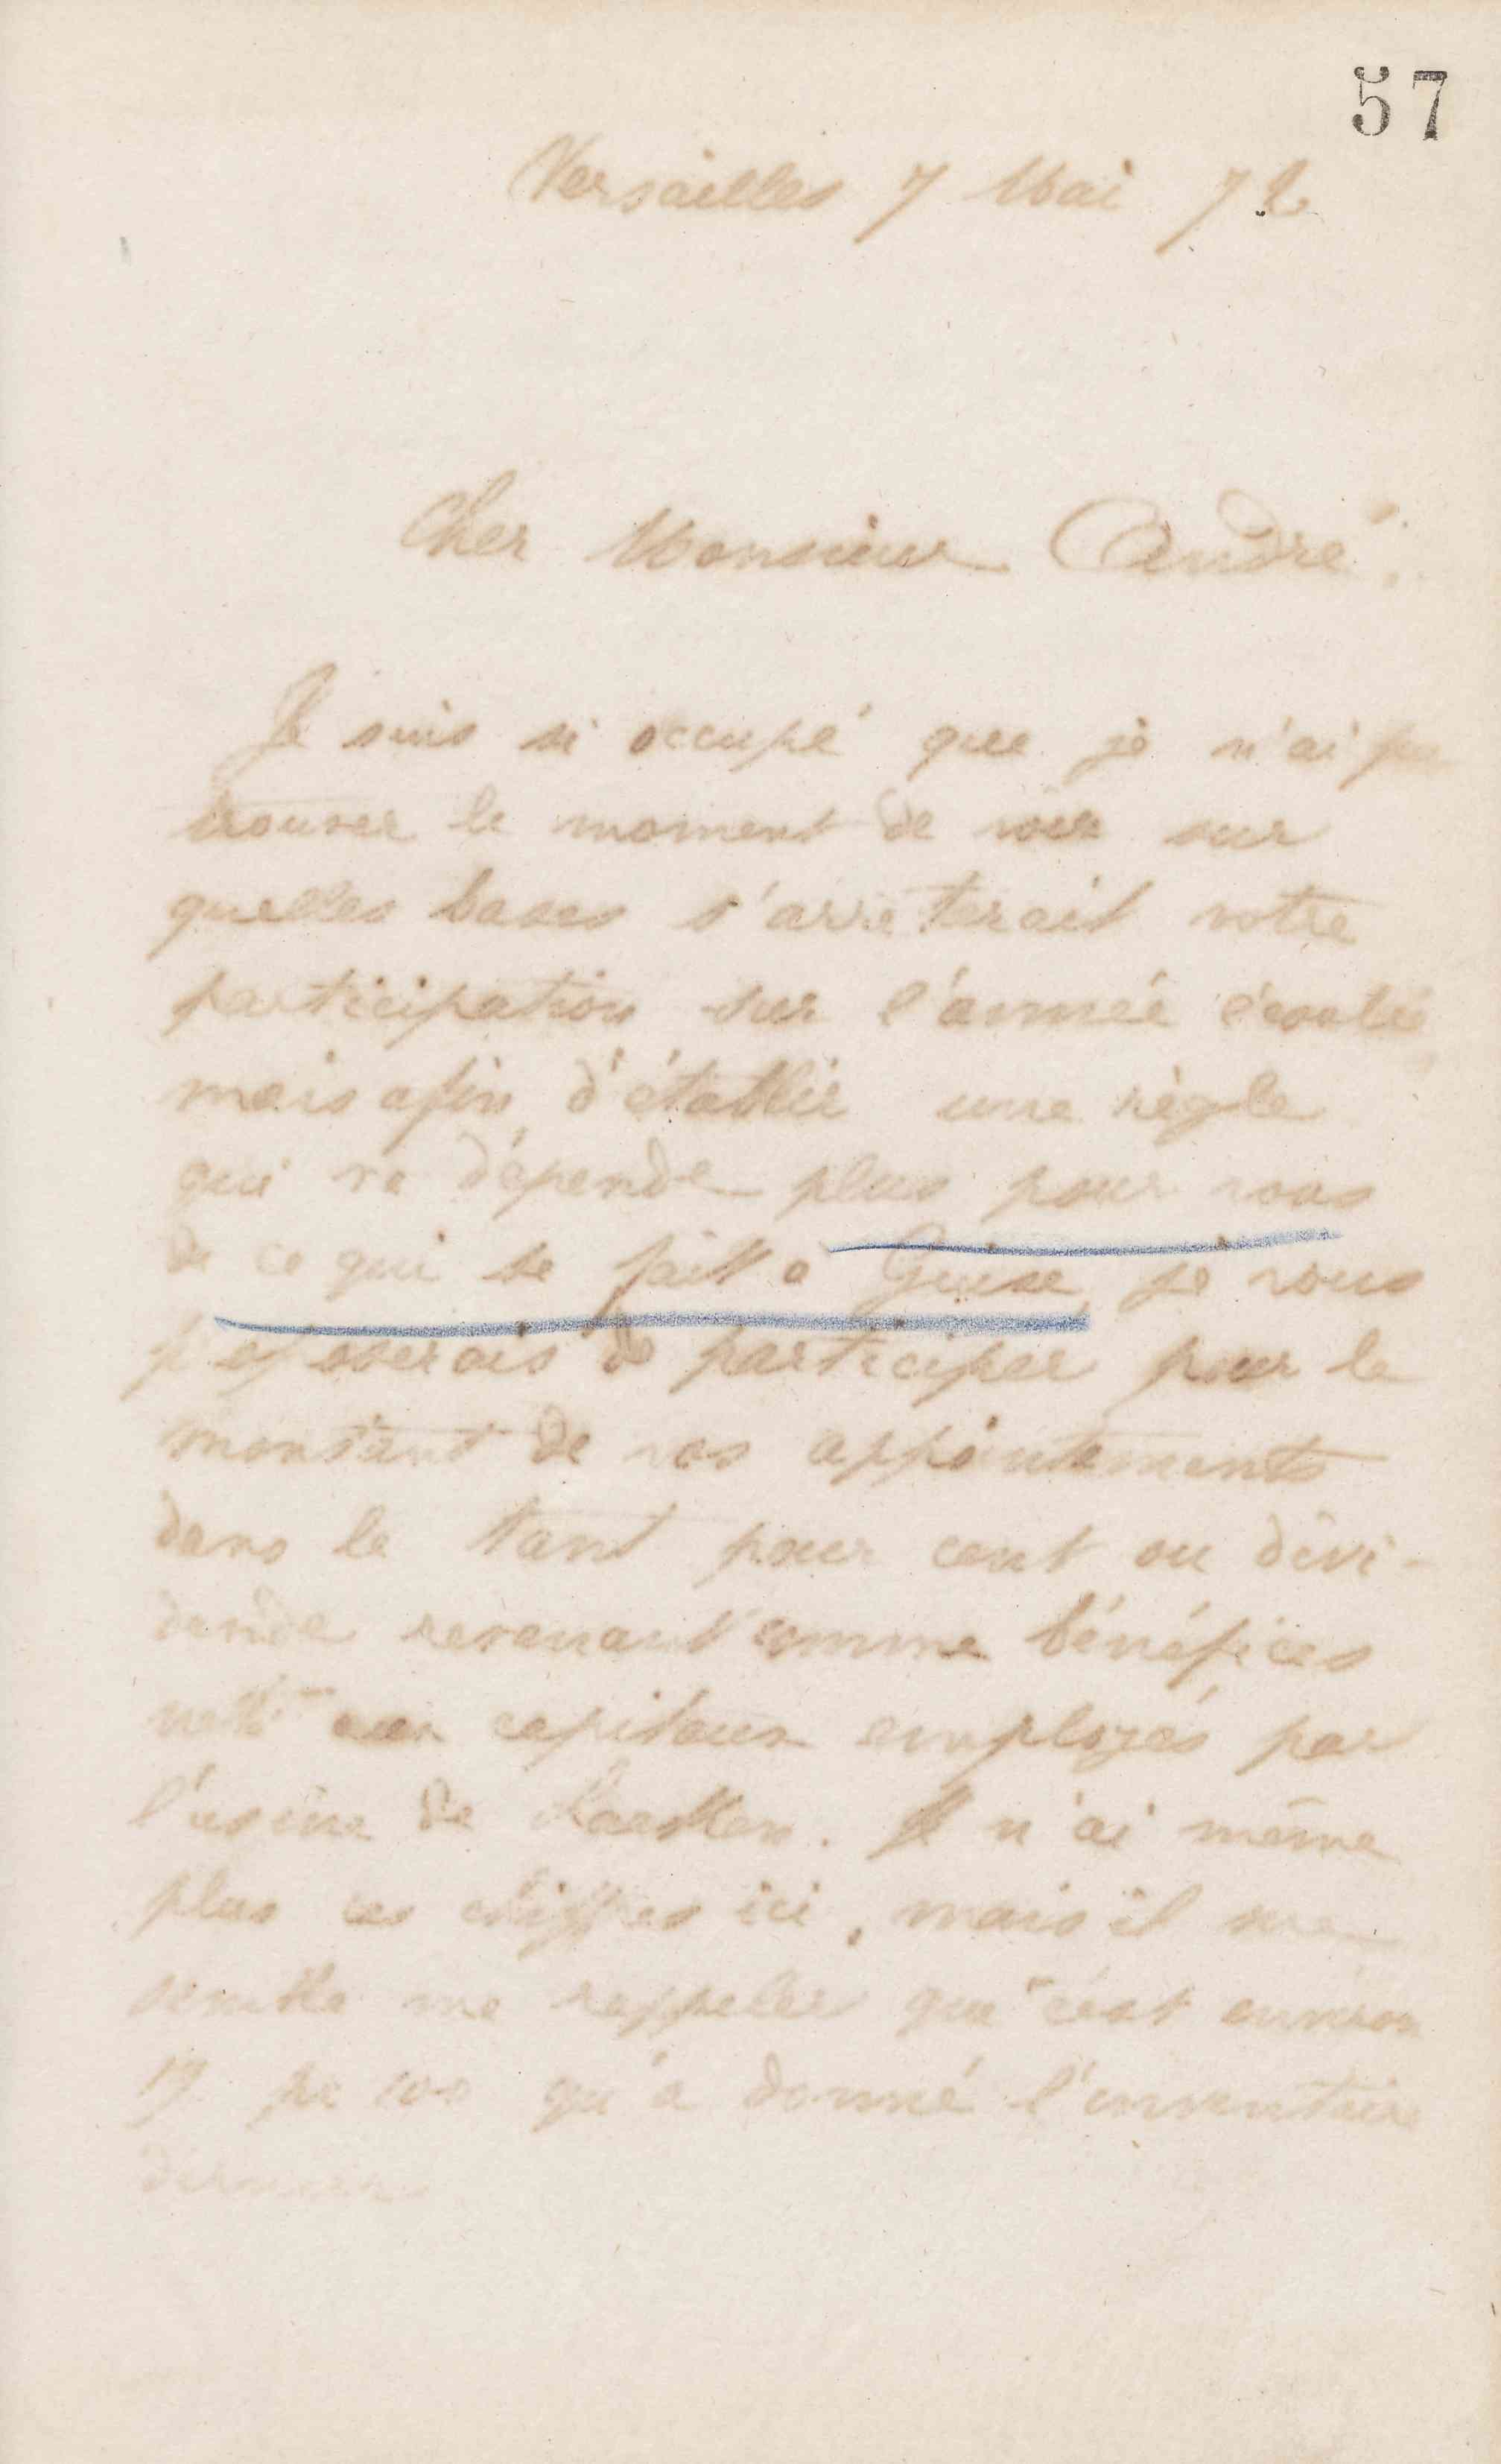 57
Versailles 7 Mai 72
Cher Monsieur André,
Je suis si occupé que je n'ai pu
trouver le moment de voir sur
quelles bases s'arreterait votre
participation sur l'année écoulée
mais afin d'établir une règle
qui ne dépende plus pour vous
de ce qui se fait à Guise, je vous
proposerais de participer pour le
montant de vos appointements
dans le tant pour cent ou divi-
dende revenant comme bénéfices
nets aux capitaux employés par
l'usine de Laeken. Je n'ai même
plus ces chiffres ici, mais il me
semble me rappeler que c'est environ
pr 100 qu'a donné l'inventaire
dernier